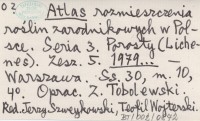 02
Atlas rozmieszczenia
roślin zarodnikowych w Pol-
sce. Seria 3. Porosty (Liche-
nes). Zesz. 5. 1979...—
Warszawa. Ss. 30, m. 10,
40. Oprac. Z. Tobolewski.
Red. Jerzy Szweykowski, Teofil Wojterski.